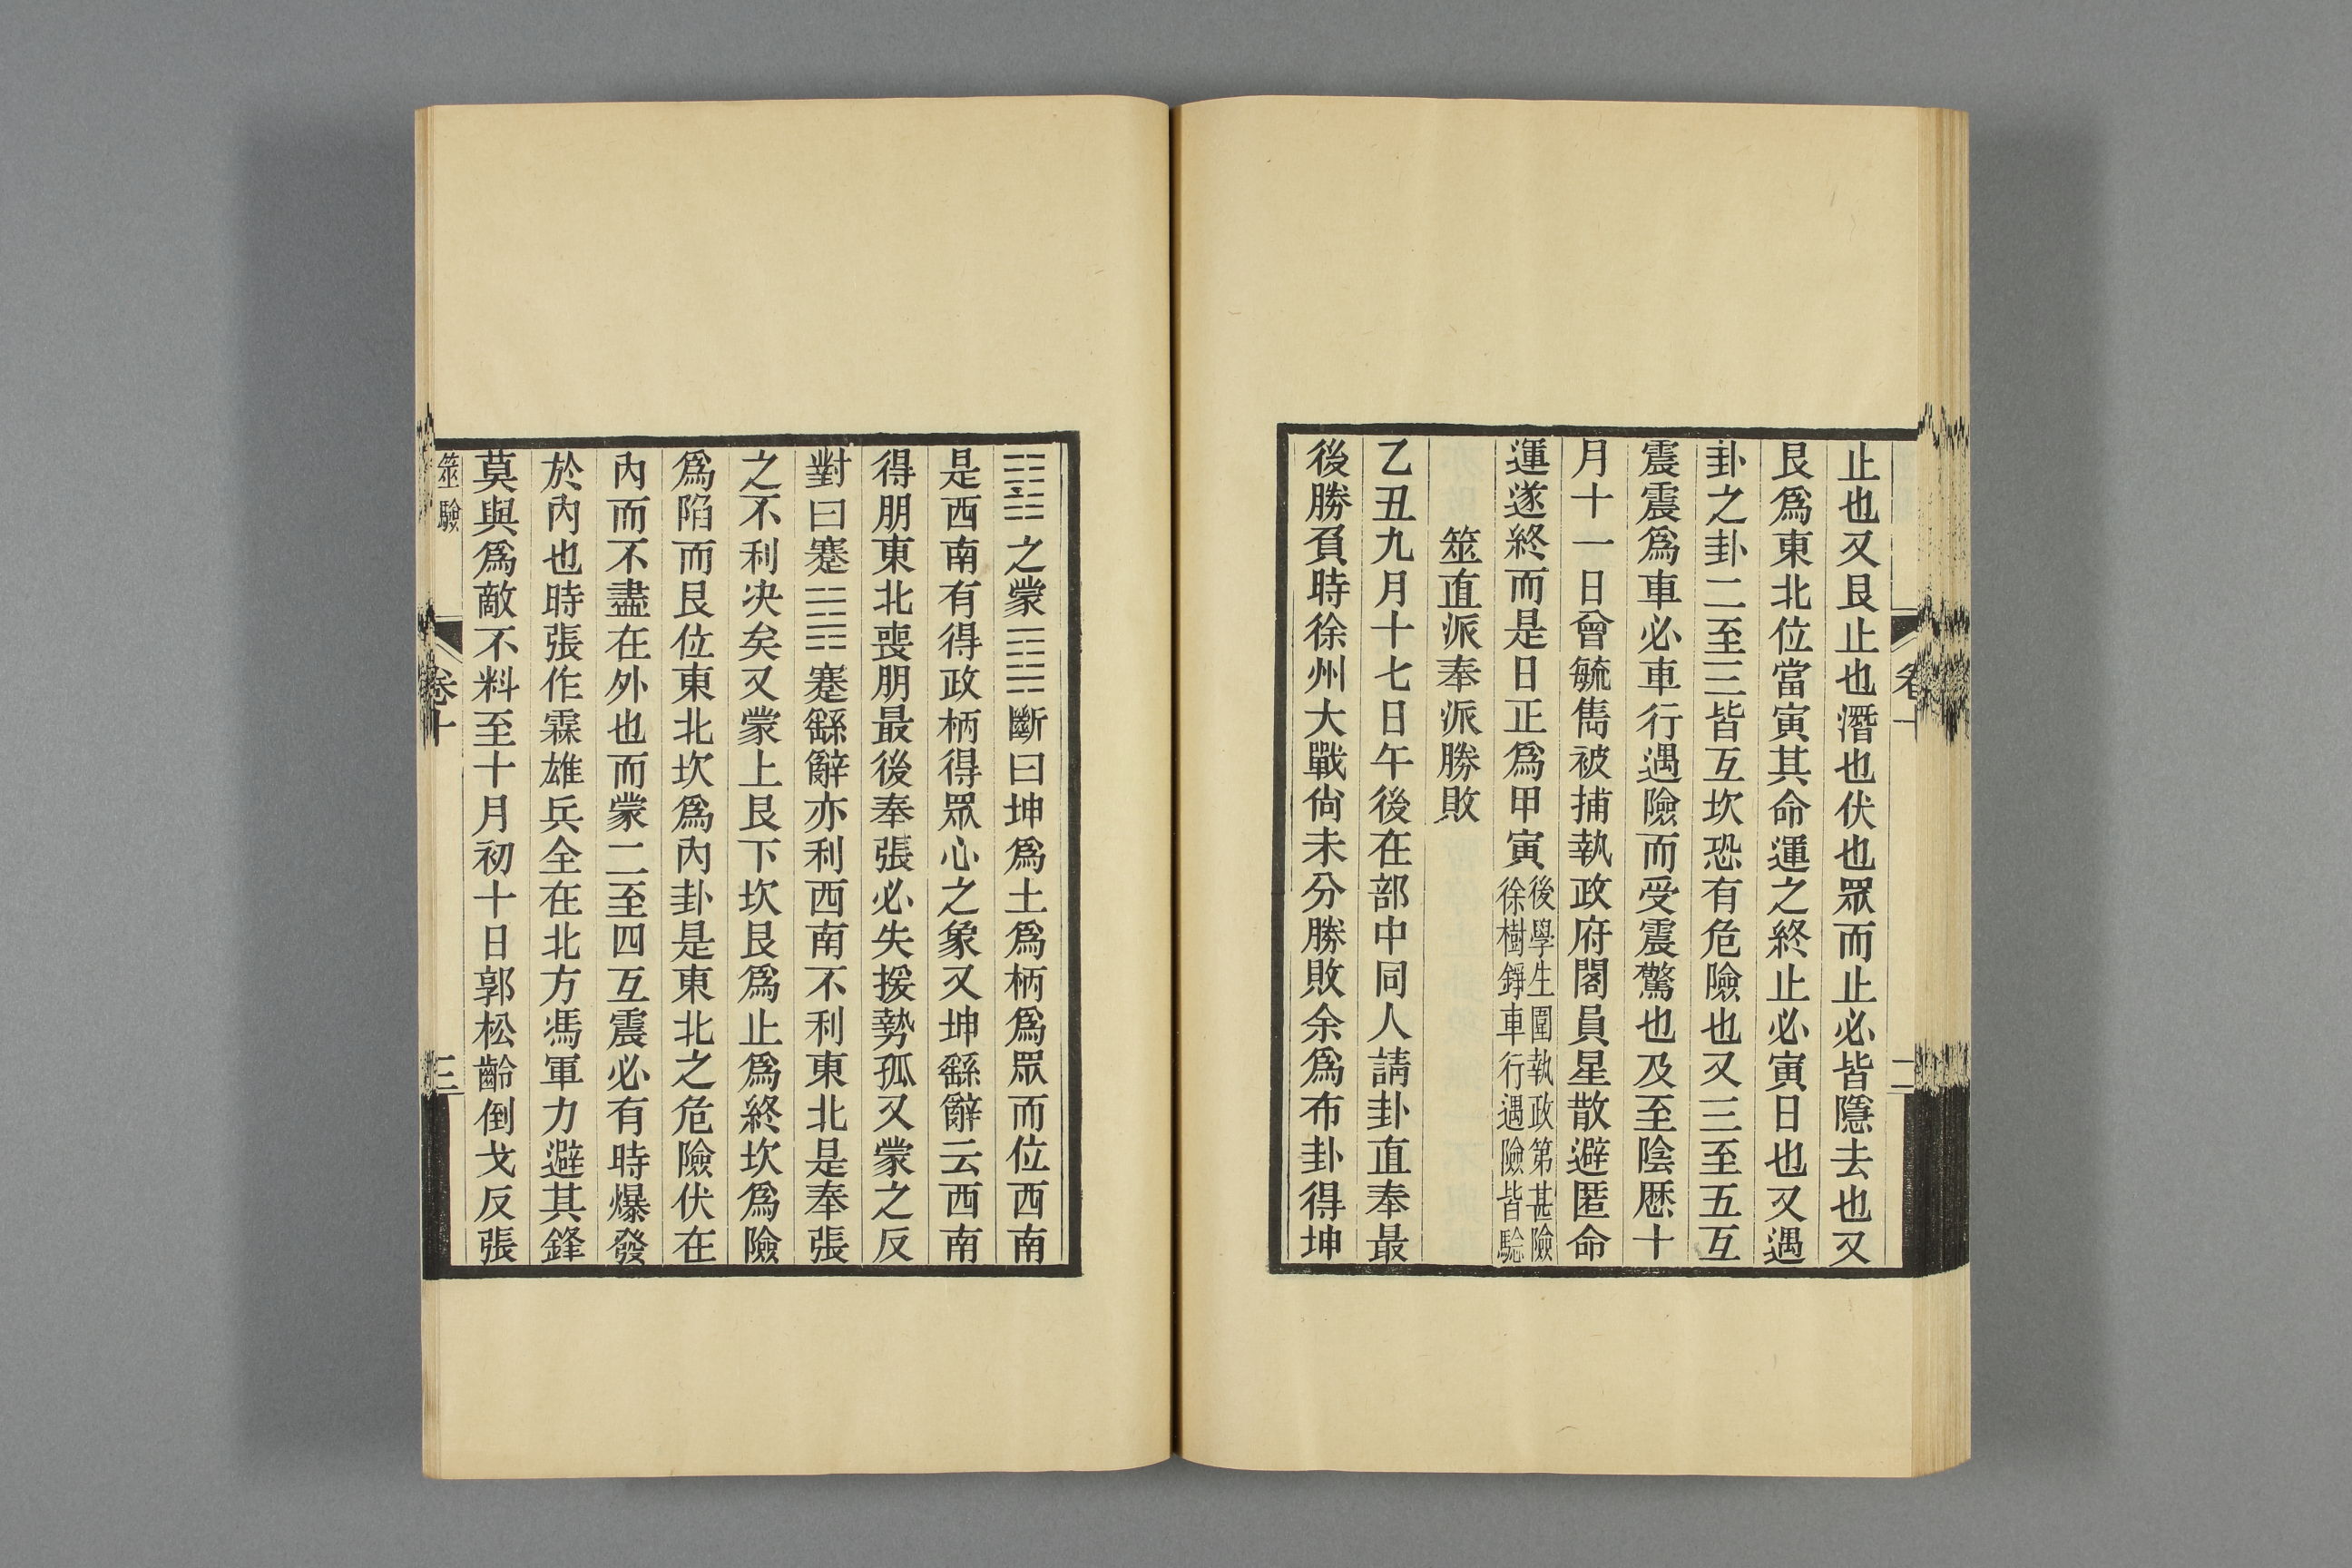 止也又艮止也潛也伏也眾而止必皆隱去也又
艮爲東北位當寅其命運之終止必寅日也又遇
卦之卦二至三皆互坎恐有危險也又三至五互
震震爲車必車行遇險而受震驚也及至陰厯十
月十一日曾毓雋被捕執政府閣員星散避匿命
運遂終而是日正爲甲寅
後學生圍執政第甚險
徐樹錚車行遇險皆驗
筮直派奉派勝敗
乙丑九月十七日午後在部中同人請卦直奉最
後勝負時徐州大戰尙未分勝敗余爲布卦得坤
卷十
二
之蒙䷃斷曰坤爲土爲柄爲眾而位西南
是西南有得政柄得眾心之象又坤繇辭云西南
得朋東北喪朋最後奉張必失援勢孤又蒙之反
對曰蹇䷦蹇繇辭亦利西南不利東北是奉張
之不利決矣又蒙上艮下坎艮爲止爲終坎爲險
爲陷而艮位東北坎爲內卦是東北之危險伏在
內而不盡在外也而蒙二至四互震必有時爆發
於內也時張作霖雄兵全在北方馮軍力避其鋒
莫與爲敵不料至十月初十日郭松齡倒戈反張
筮驗
卷十
三